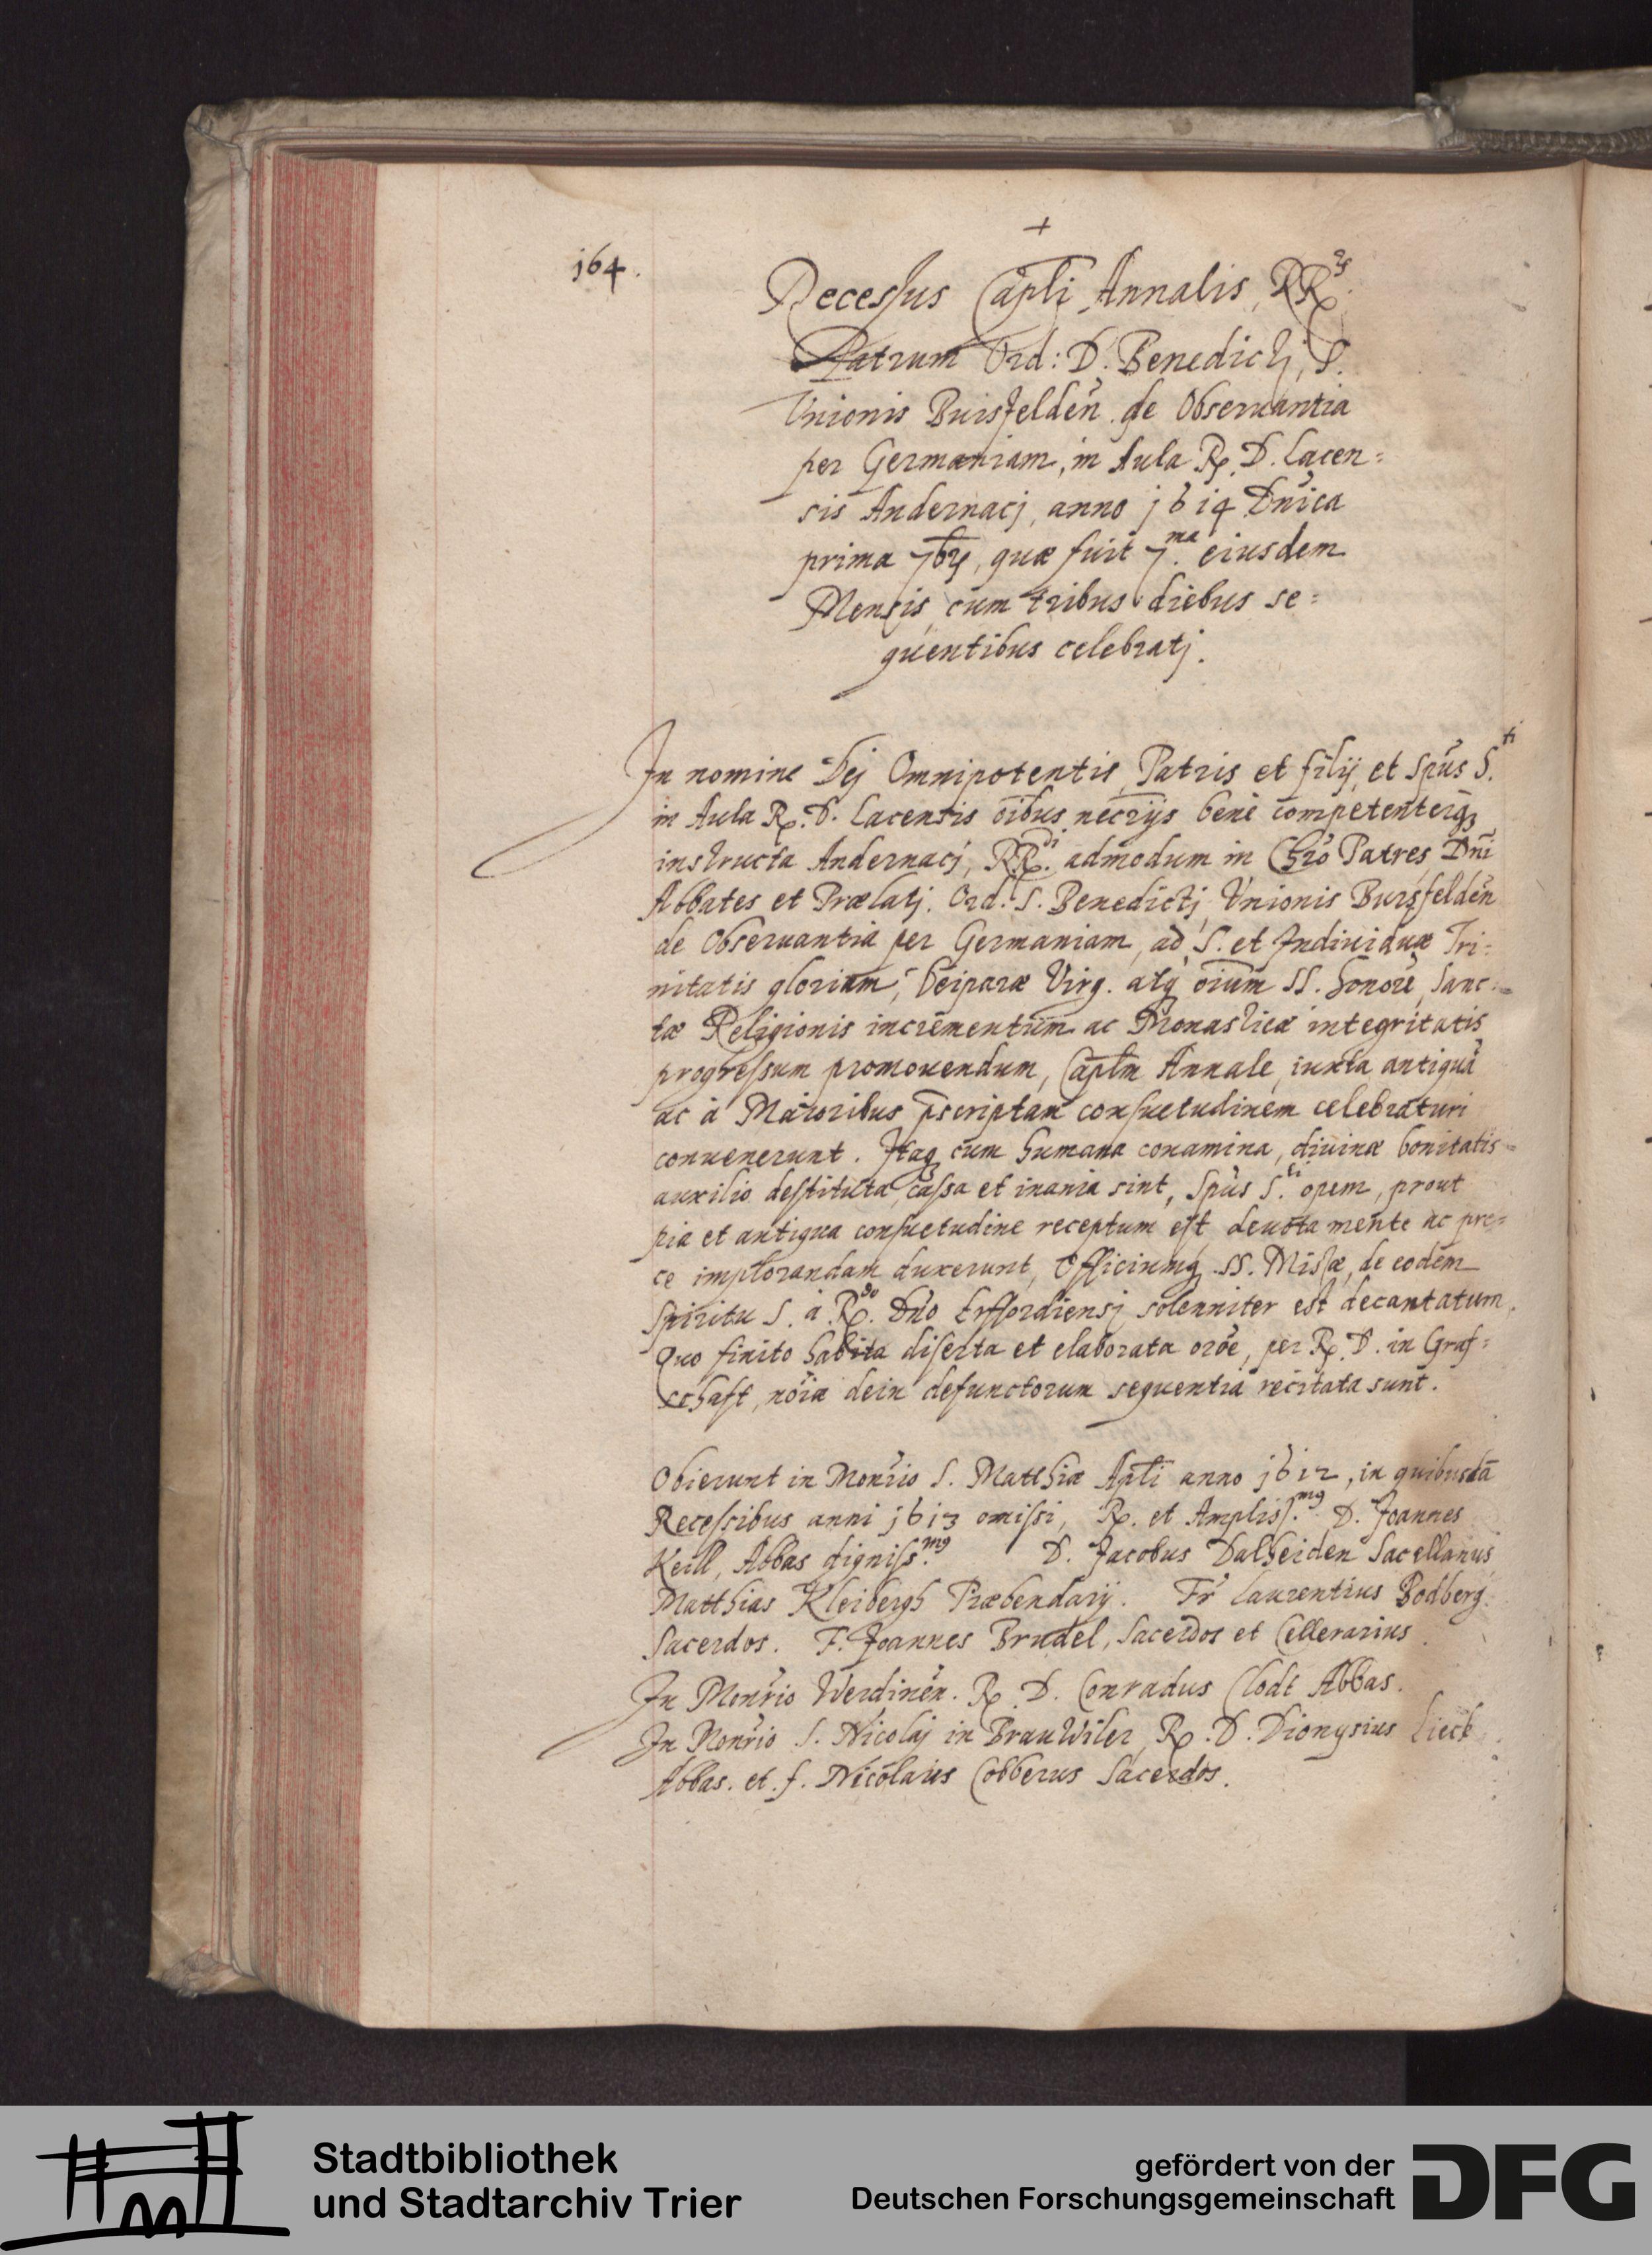 +
164.
Recessus Capli Annalis, RR.
Patrum Ord: D. Benedicti, S.
Unionis Buisfelden̄. de Obseruantia
per Germaniam, in Aula R. D. Lacen=
sis Andernacj, anno 1614 Dnica
prima 7br, quæ fuit 7.ma eiusdem
Mensis, cum tribus diebus se=
quentibus celebratj.
In nomine Dej Omnipotentis, Patris et filij, et Spūs S.ti
in Aula R. D. Lacensis oībus necrijs benè competenterq3
instructa Andernacj, RR.di admodum in Chrō Patres Dnī
Abbates et Prælatj. Ord. S. Benedictj Unionis Bursfelden̄
de Obseruantia per Germaniam, ad S. et Indiuiduæ Tri=
nitatis gloriam, Deiparæ Virg. atq oīum SS. honorē, Sanc=
tæ Religionis incrementum ac Monasticæ integritatis
progressum promouendum, Caplm Annale, iuxta antiquā
ac à Maioribus p̄scriptam consuetudinem celebraturi
conuenerunt. Itaq cum humana conamina, diuinæ bonitatis
auxilio destituta, cassa et inania sint, Spūs S.ti opem, prout
pia et antiqua consuetudine receptum est deuota mente ac pre=
ce implorandam duxerunt, Officiumq SS. Missæ, de eodem
Spiritu S. à R.do Dño Erffordiensj solenniter est decantatum.
Quo finito habita diserta et elaborata oroē, per R. D. in Graf=
schaft, noīa dein defunctorum sequentia recitata sunt.
Obierunt in Monrio S. Matthiæ Aplī anno 1612, in quibusdā
Recessibus anni 1613 omissi, R. et Ampliss.mg D. Joannes
Keill, Abbas digniss.mg D. Jacobus Dalheiden Sacellanus
Matthias Kleibergh Præbendarij. Fr̄ Laurentius Bodberg.
Sacerdos. F. Joannes Brudel, Sacerdos et Cellerarius.
In Monrio Werdinen̄. R. D. Conradus Clodt Abbas.
In Monrio S. Nicolaj in BrauWiler R. D. Dionysius Lieck
Abbas. et. f. Nicolaus Cobberus Sacerdos.
Stadtbibliothek
und Stadtarchiv Trier
gefördert von der
Deutschen Forschungsgemeinschaft
DFG